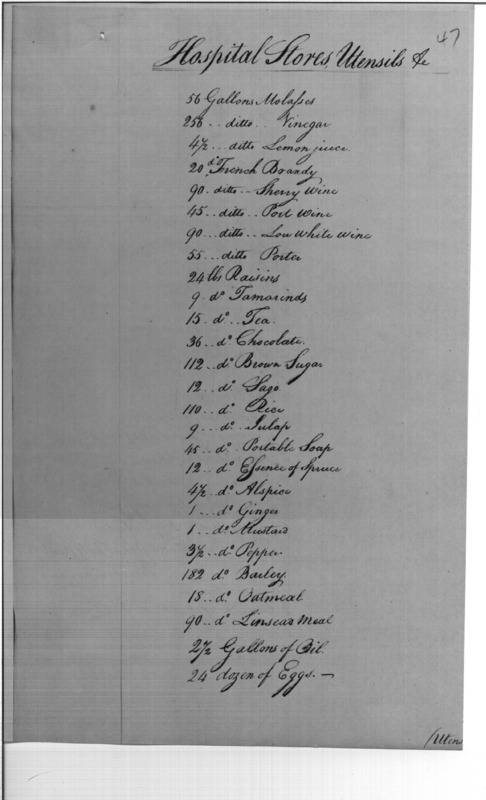 47
Hospital Stores, Utensils &c
56 Gallons Molasses
256 .. ditto .. Vinegar
4½ .. ditto Lemon juice
20 do. French Brandy
90 . ditto .. Sherry Wine
45 .. ditto .. Port Wine
90 .. ditto .. Low White Wine
55 .. ditto Porter
24 lbs Raisins
9 . do Tamarinds
15 . do .. Tea.
36 .. do Chocolate.
112 .. do Brown Sugar
12 .. do. Sago
110 .. do. Rice
9 .. do. Julap
45 .. do. Portable Soap
12 .. do Essence of Spruce
4½ do Alspice
1 ... do Ginger
1 .. do Mustard
3½ .. do Pepper.
182 do Barley.
18 .. do. Oatmeal
90 .. do Linseed Meal
2½ Gallons of Oil.
24 dozen of Eggs. —
/Utens